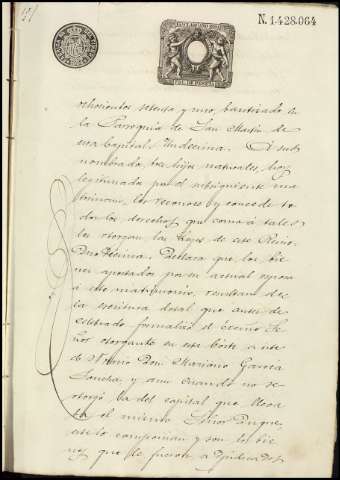 191
N. 1.428.064
ochocientos setenta y uno, bautizado en
la Parroquia de San Martín de
esta Capital. Undecima. A sus
nombrados tres hijos naturales, hoy
legitimados por el subsiguiente ma
trimonio, los reconoce y concede to
dos los derechos que como á tales
les otorgan las leyes de este Reino.
Duodécima. Declara que los bie
nes aportados por su actual esposa
á este matrimonio, resultan de
la escritura dotal que antes de
celebrado formalizó el Excmo Se
ñor otorgante en esta Corte ante
Don Mariano García
Sancha, y aun cuando no se
otorgó la del capital que lleva
ba el mismo Señor Duque,
este lo componian y son los bie
nes que le fueron adjudicados